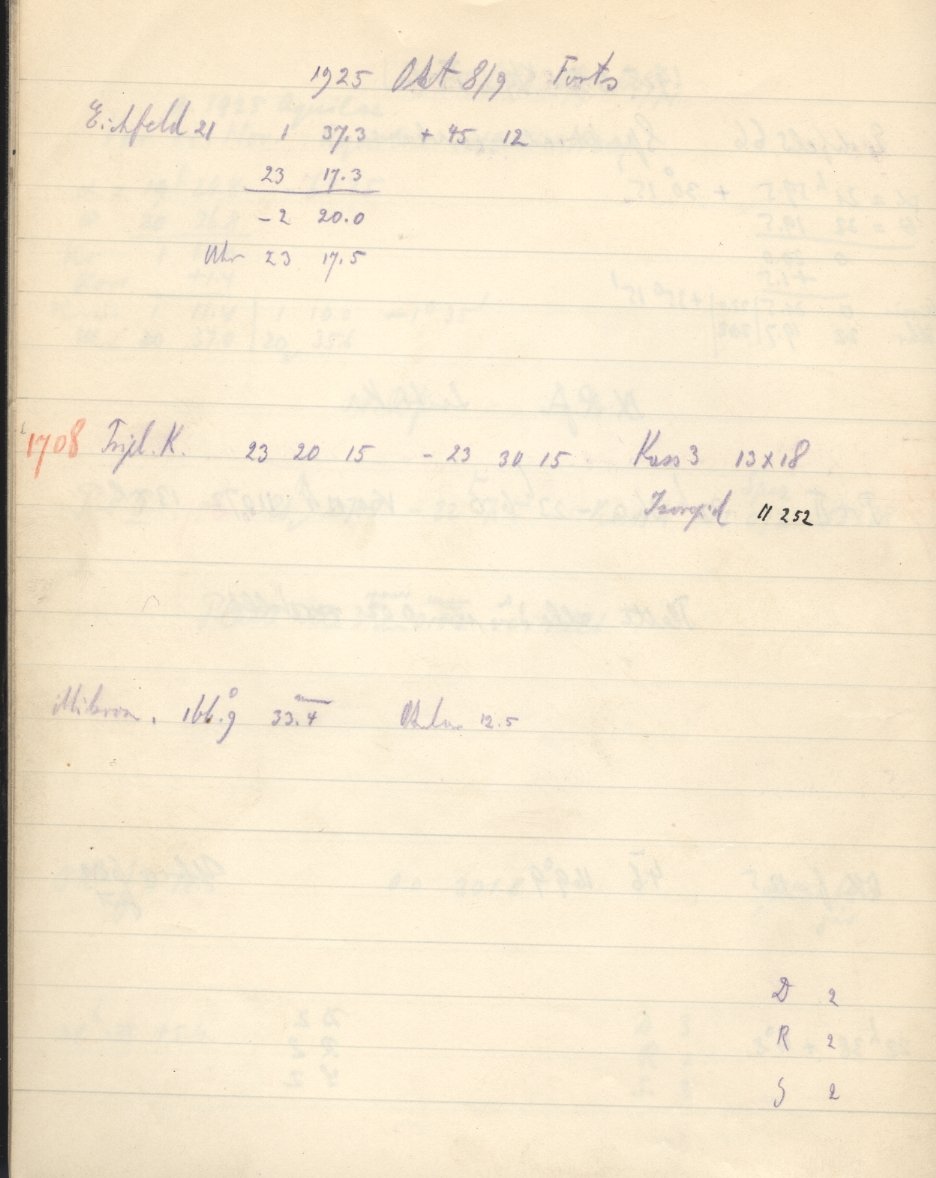 1925 Okt 8/9 Forts
Eichfeld 21 1 37.3 + 45 12
23 17.3
-2 20.0
Uhr 23 17.5
1708 Tripl. K. 23 20 15 - 23 30 15. Kass 3 13x18
11252
Mikrom. 166.9 33.4 Okular 12.5
D 2
R 2
S 2